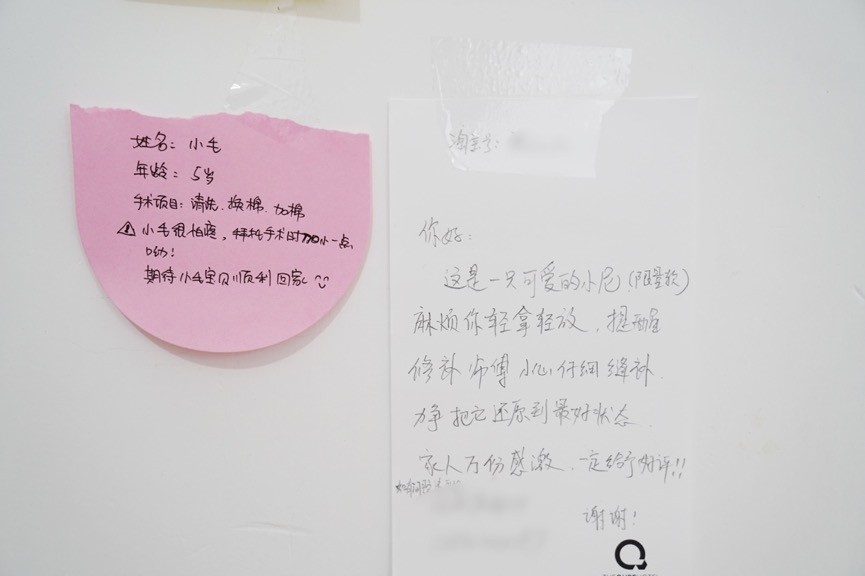 姓名：小毛
年龄：5岁
手术项目：清洗、换棉、加棉
⚠小毛很怕疼，拜托手术时力小一点
呦！
期待小毛宝贝顺利回家
淘宝号：
你好：
这是一只可爱的小尼(限量款)
麻烦你轻拿轻放，提醒
修补师傅小心仔细缝补.
力争把它还原到最好状态.
家人万份感激、一定给予好评!!
谢谢!